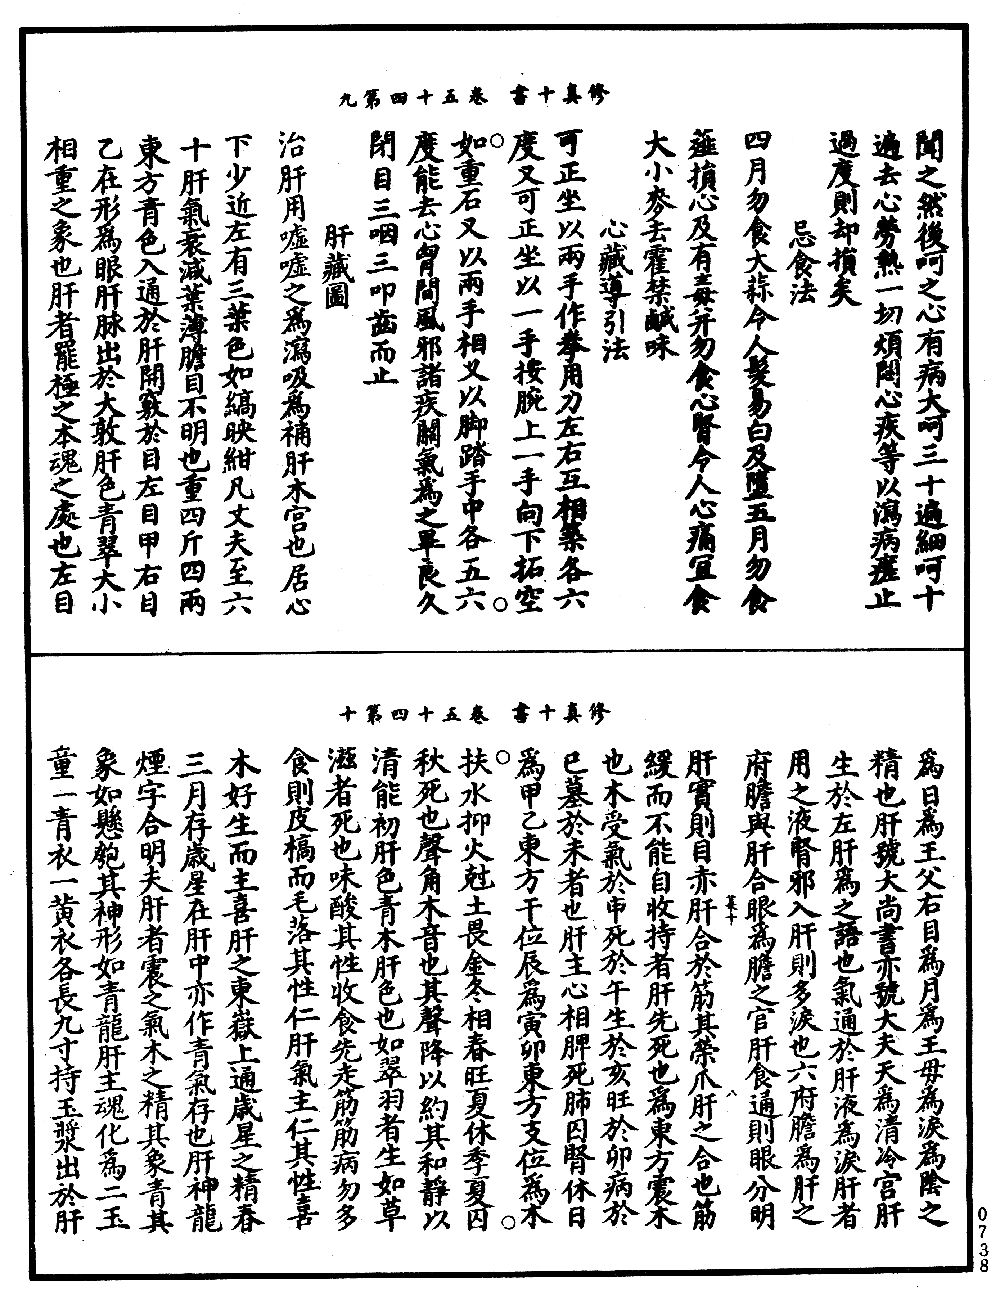 修真十書 卷五十四 第九
聞之然後呵之心有病大呵三十遍細呵十
遍去心勞熱一切煩悶心疾等以瀉病瘥止
過度則却損矣
忌食法
四月勿食大蒜令人髮易白及墮五月勿食
薤損心及有毒并勿食心腎令人心痛宜食
大小麥去藿禁鹹味
心藏導引法
可正坐以兩手作拳用力左右互相築各六
度又可正坐以一手按腕上一手向下拓空
如重石又以兩手相叉以脚踏手中各五六
度能去心胷間風邪諸疾關氣爲之畢良久
閉目三咽三叩齒而止
肝藏圖
治肝用噓噓之爲瀉吸爲補肝木宮也居心
下少近左有三葉色如縞映紺凡丈夫至六
十肝氣衰減葉薄膽目不明也重四斤四兩
東方青色入通於肝開竅於目左目甲右目
乙在形爲眼肝脉出於大敦肝色青翠大小
相重之象也肝者罷極之本魂之處也左目
修真十書 卷五十四 第十
爲日爲王父右目爲月爲王母爲淚爲陰之
精也肝號大尚書亦號大夫天爲清冷宮肝
生於左肝爲之語也氣通於肝液爲淚肝者
用之液腎邪入肝則多淚也六府膽爲肝之
府膽與肝合眼爲膽之官肝食通則眼分明
肝實則目赤肝合於筋其榮爪肝之合也筋
緩而不能自收持者肝先死也爲東方震木
也木受氣於申死於午生於亥旺於卯病於
巳墓於未者也肝主心相脾死肺囚腎休日
爲甲乙東方干位辰爲寅卯東方支位爲木
扶水抑火尅土畏金冬相春旺夏休季夏囚
秋死也聲角木音也其聲降以約其和靜以
清能初肝色青木肝色也如翠羽者生如草
滋者死也味酸其性收食先走筋筋病勿多
食則皮槁而毛落其性仁肝氣主仁其性喜
木好生而主喜肝之東嶽上通歲星之精春
三月存歲星在肝中亦作青氣存也肝神龍
煙字合明夫肝者震之氣木之精其象青其
象如懸匏其神形如青龍肝主魂化爲二玉
童一青衣一黄衣各長九寸持玉漿出於肝
八
0738